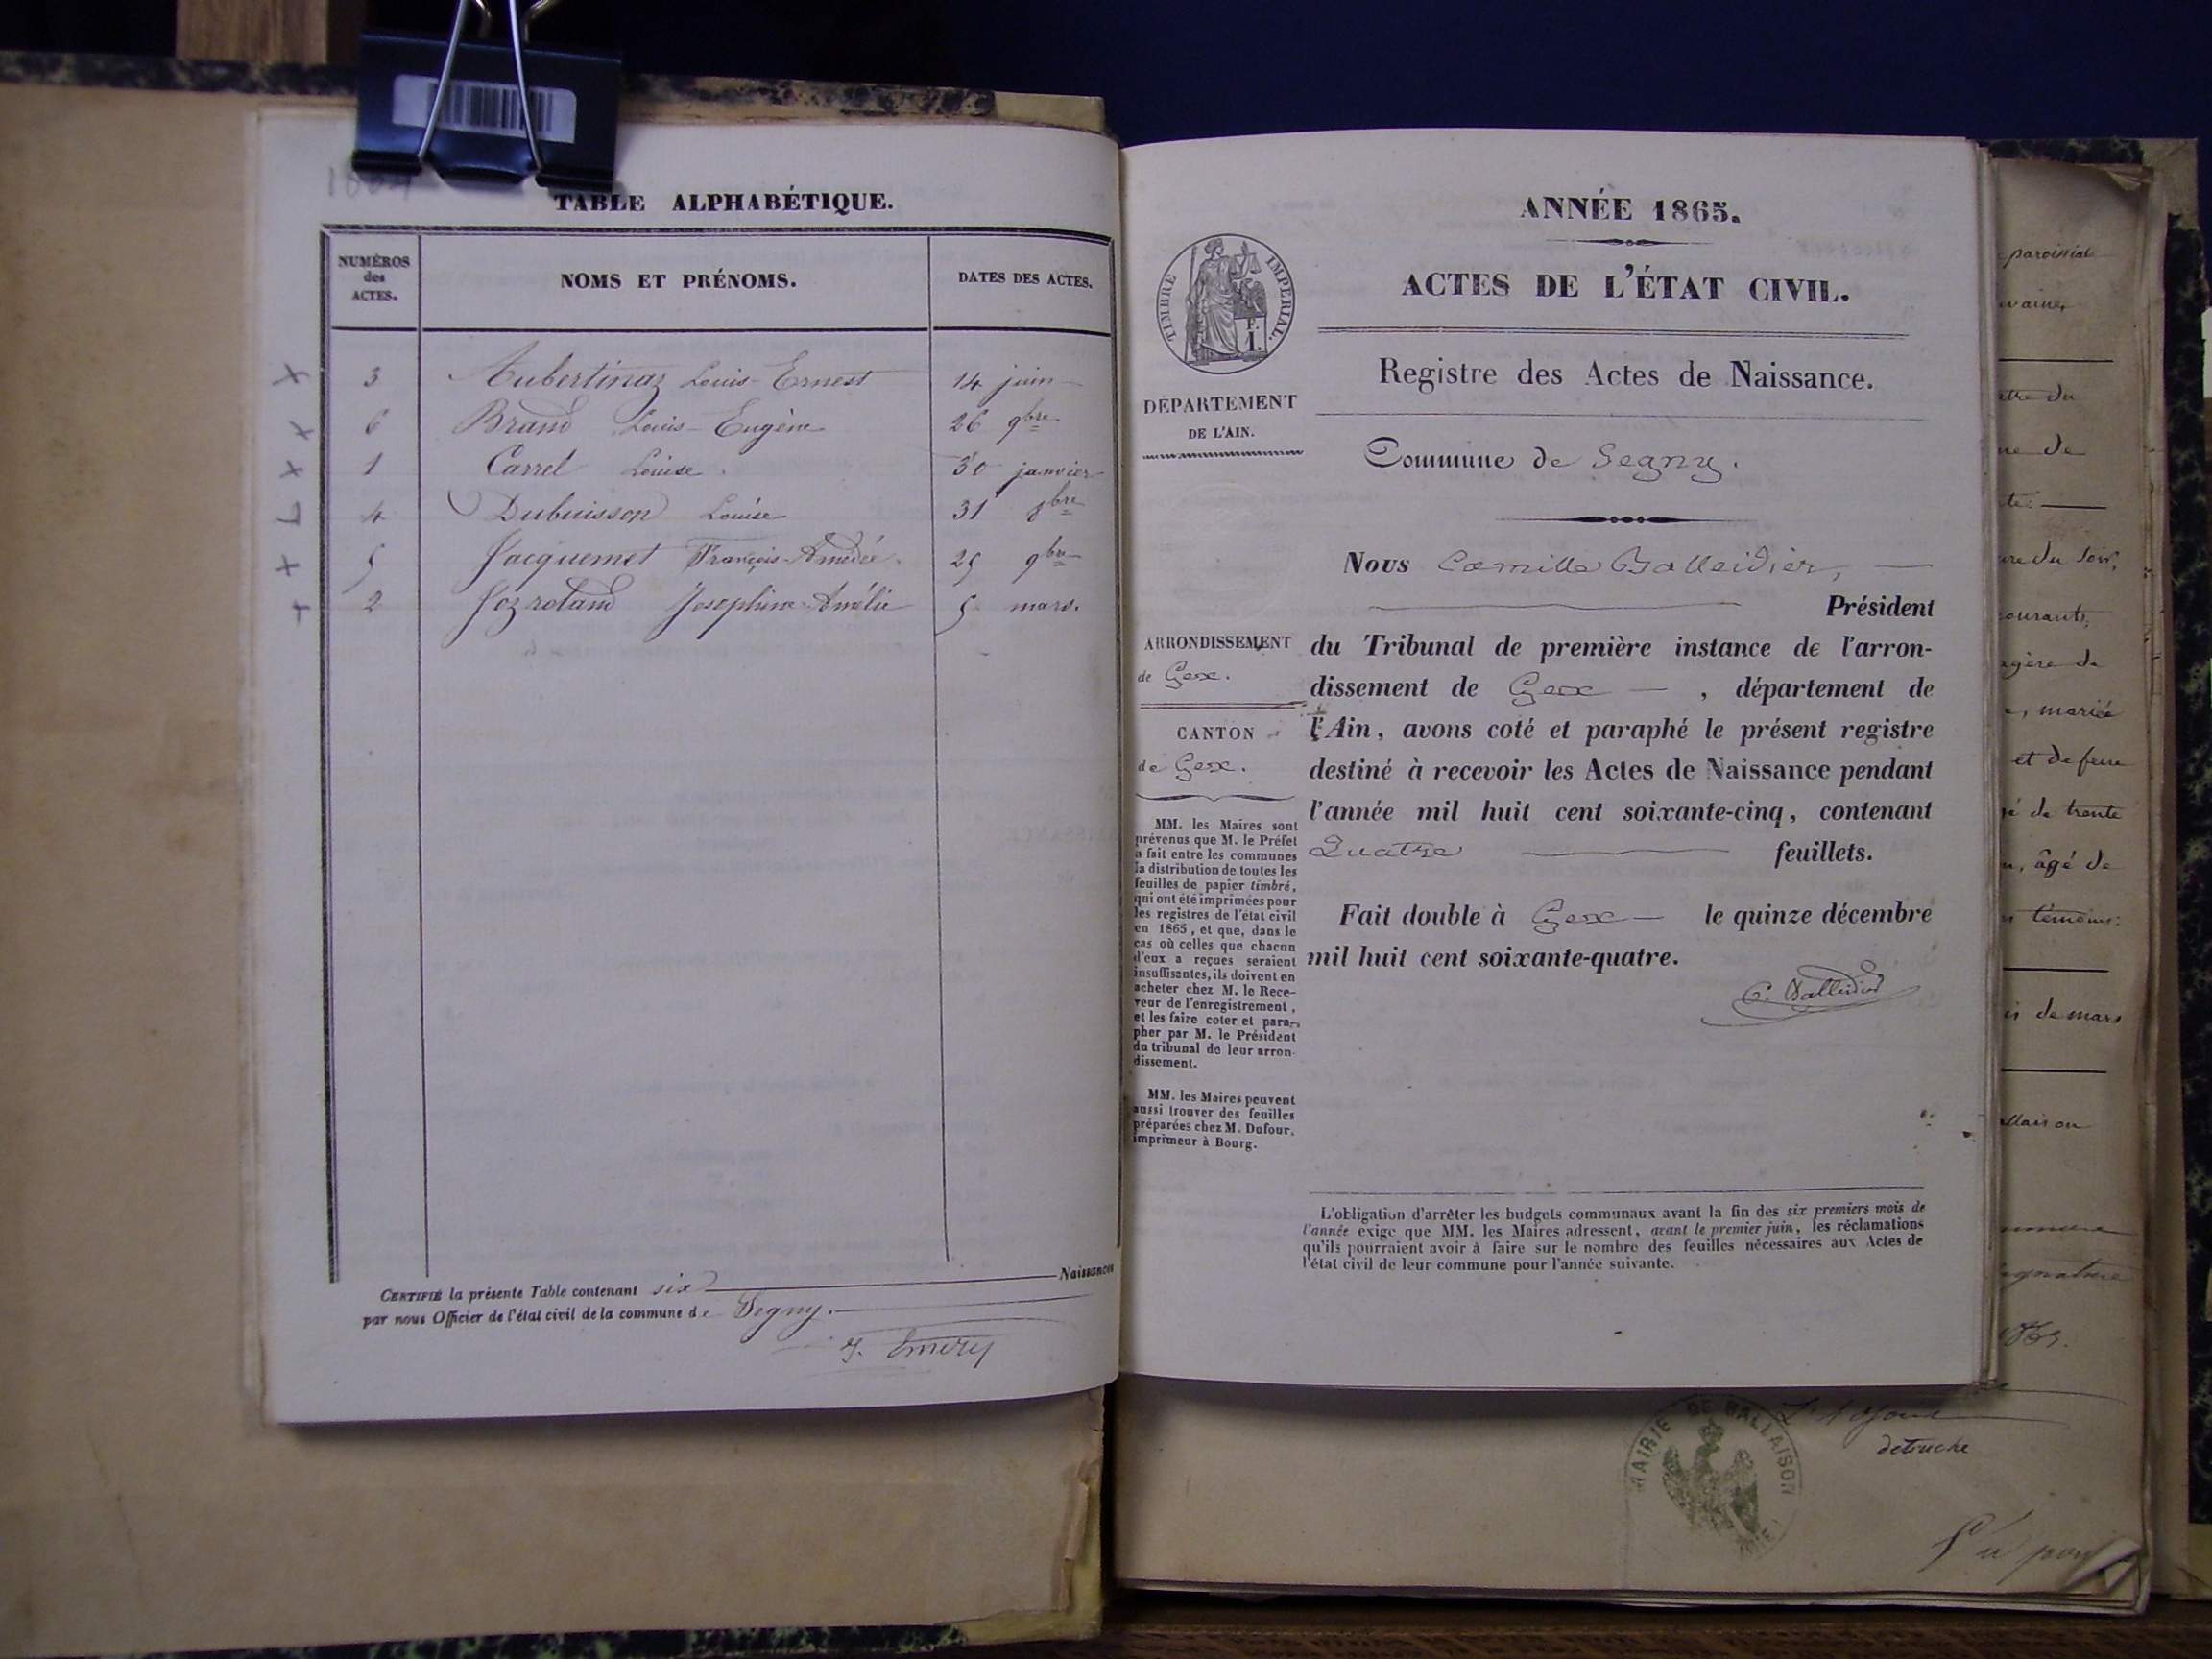 TABLE ALPHABÉTIQUE.
NUMÉROS des ACTES.
NOMS ET PRÉNOMS.
DATES DES ACTES.
3 Aubertinaz Louis-Ernest 14 juin
6 Brand Louis-Eugène 26 9bre
1 Carrel Louise. 30 janvier
4 Dubuisson Louise 31 8bre
5 Jacquemet François-Amédée. 25 9bre
2 Jozroland Josephine-Amélie 5 mars.
CERTIFIÉ la présente Table contenant six Naissances
par nous Officier de l'état civil de la commune de Segny.
J. Emery
ANNÉE 1865.
ACTES DE L'ÉTAT CIVIL.
TIMBRE IMPÉRIAL.
Registre des Actes de Naissance.
DÉPARTEMENT
DE L'AIN.
Commune de Segny.
Nous Camille Balleidier,
Président
ARRONDISSEMENT
de Gex.
CANTON
de Gex.
du Tribunal de première instance de l'arron-
dissement de Gex , département de
l'Ain, avons coté et paraphé le présent registre
destiné à recevoir les Actes de Naissance pendant
l'année mil huit cent soixante-cinq, contenant
Quatre feuillets.
Fait double à Gex le quinze décembre
mil huit cent soixante-quatre.
C. Balleidier
MM. les Maires sont
prévenus que M. le Préfet
a fait entre les communes
la distribution de toutes les
feuilles de papier timbré,
qui ont été imprimées pour
les registres de l'état civil
en 1865, et que, dans le
cas où celles que chacun
d'eux a reçues seraient
insuffisantes, ils doivent en
acheter chez M. le Rece-
veur de l'enregistrement,
et les faire coter et para-
pher par M. le Président
du tribunal de leur arron-
dissement.
MM. les Maires peuvent
aussi trouver des feuilles
préparées chez M. Dufour,
imprimeur à Bourg.
L'obligation d'arrêter les budgets communaux avant la fin des six premiers mois de
l'année exige que MM. les Maires adressent, avant le premier juin, les réclamations
qu'ils pourraient avoir à faire sur le nombre des feuilles nécessaires aux Actes de
l'état civil de leur commune pour l'année suivante.
paroissial
de
mariée
et de feue
de trente
âgé de
témoins:
de mars
MAIRIE DE BALLAISON
detruche